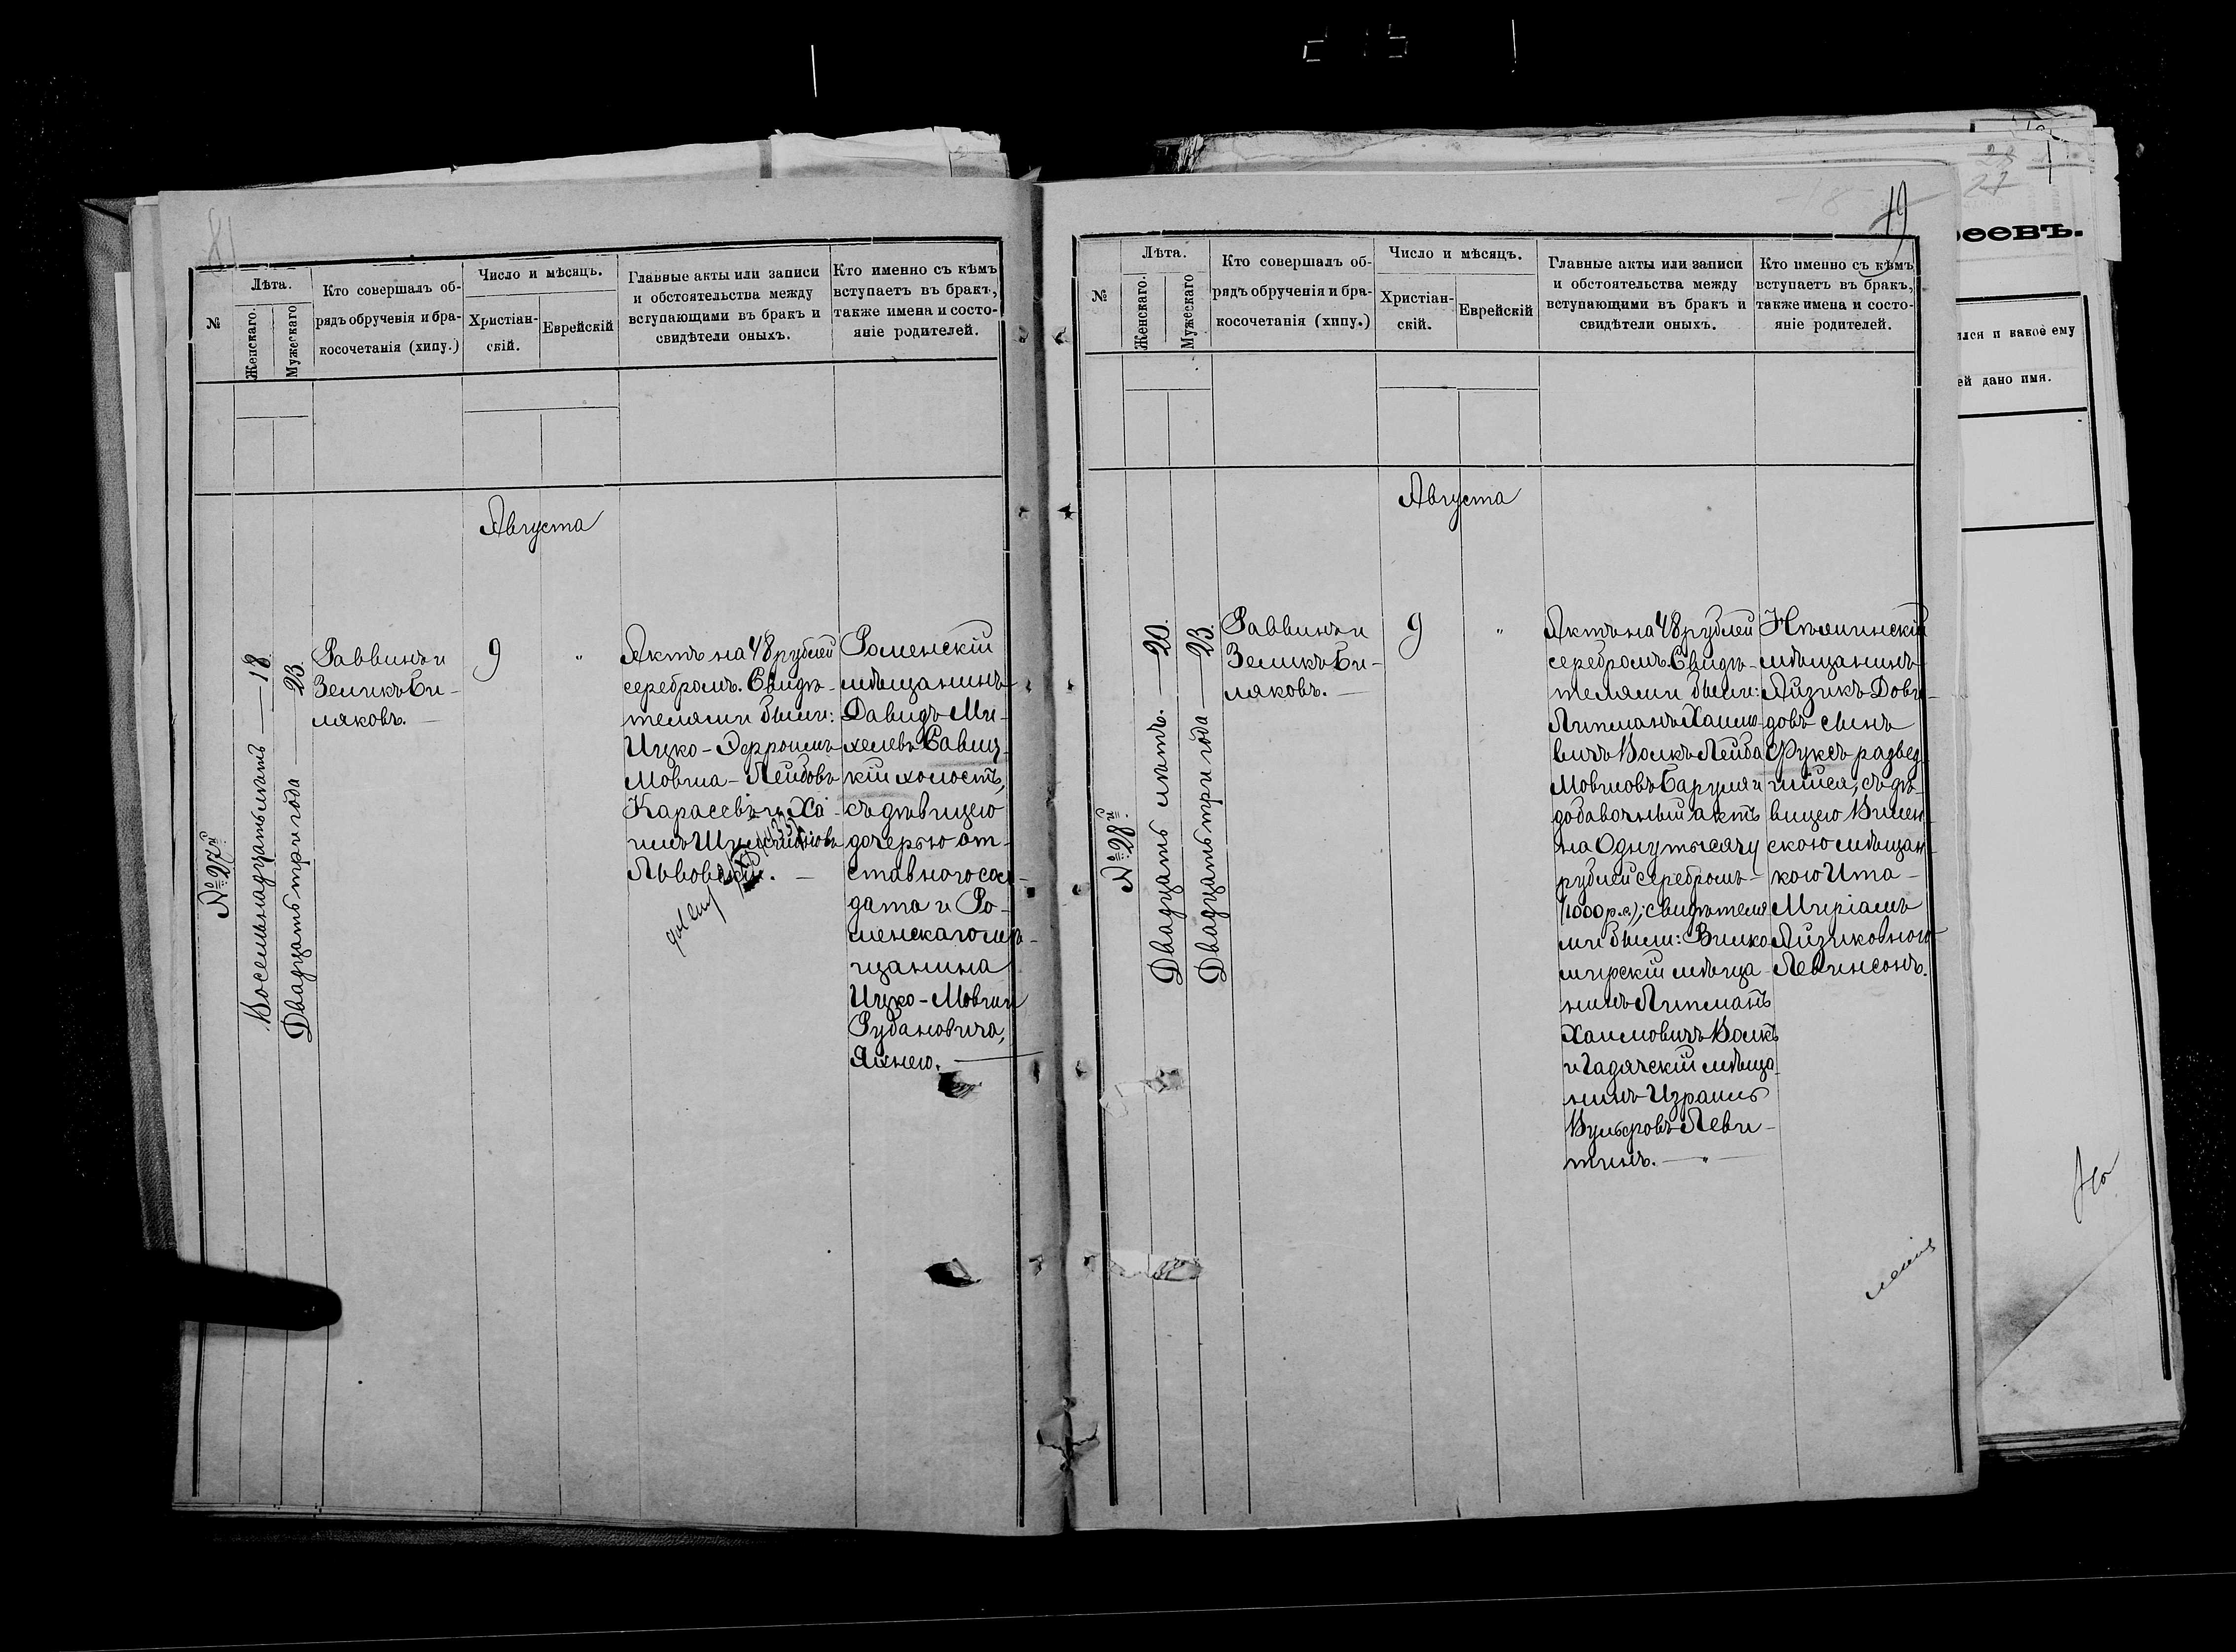 №
Лѣта.
Женскаго.
Мужескаго
Кто совершалъ об-
рядъ обрученія и бра-
косочетанія (хипу.)
Число и мѣсяцъ.
Христіан-
скій.
Еврейскій
Главные акты или записи
и обстоятельства между
вступающими въ бракъ и
свидѣтели оныхъ.
Кто именно съ кѣмъ
вступаетъ въ бракъ,
также имена и состо-
яніе родителей.
Августа
№ 27й
Восемьнадцать лѣтъ — 18.
Двадцать три года — 23.
Раввинъ и
Зеликъ Би-
ляковъ. —
9
"
Актъ на 48 рублей
серебромъ. Свидѣ-
телями были:
Ицко-Эфроимъ
Мовша-Лейбовъ
Карасевъ и Ха-
имъ
Львовскій. —
Роменскій
мѣщанинъ
Давидъ Ми-
хелевъ Савиц-
кій холостъ,
съ дѣвицею
дочерью от-
ставного сол-
дата и Ро-
менскаго мѣ-
щанина
Ицко-Мовши
Рудановича,
Яхнею. —
19
№
Лѣта.
Женскаго.
Мужескаго
Кто совершалъ об-
рядъ обрученія и бра-
косочетанія (хипу.)
Число и мѣсяцъ.
Христіан-
скій.
Еврейскій
Главные акты или записи
и обстоятельства между
вступающими въ бракъ и
свидѣтели оныхъ.
Кто именно съ кѣмъ
вступаетъ въ бракъ,
также имена и состо-
яніе родителей.
Августа
№ 28й
Двадцать лѣтъ. — 20.
Двадцать три года — 23.
Раввинъ и
Зеликъ Би-
ляковъ. —
9
"
Актъ на 48 рублей
серебромъ. Свидѣ-
телями были:
Липманъ Хаимо-
вичъ Волкъ Лейба
Мовшовъ Баруля и
добавочный актъ
на Одну тысячу
рублей серебромъ
(1000 р. с.); свидѣтеля
ми были: Вилко-
мирскій мѣща-
нинъ Липманъ
Хаимовичъ Волкъ
и Гадячскій мѣща-
нинъ Израиль
Вульфовъ Леви-
тинъ. — " —
мѣщанинъ
Айзикъ Дови-
довъ сынъ
Фуксъ развед-
шійся, съ дѣ-
вицею Вилен-
скою мѣщан-
кою Ита-
Миріамъ
Айзиковною
Левинсонъ.
28
27
еевъ.
ился и какое ему
ей дано имя.